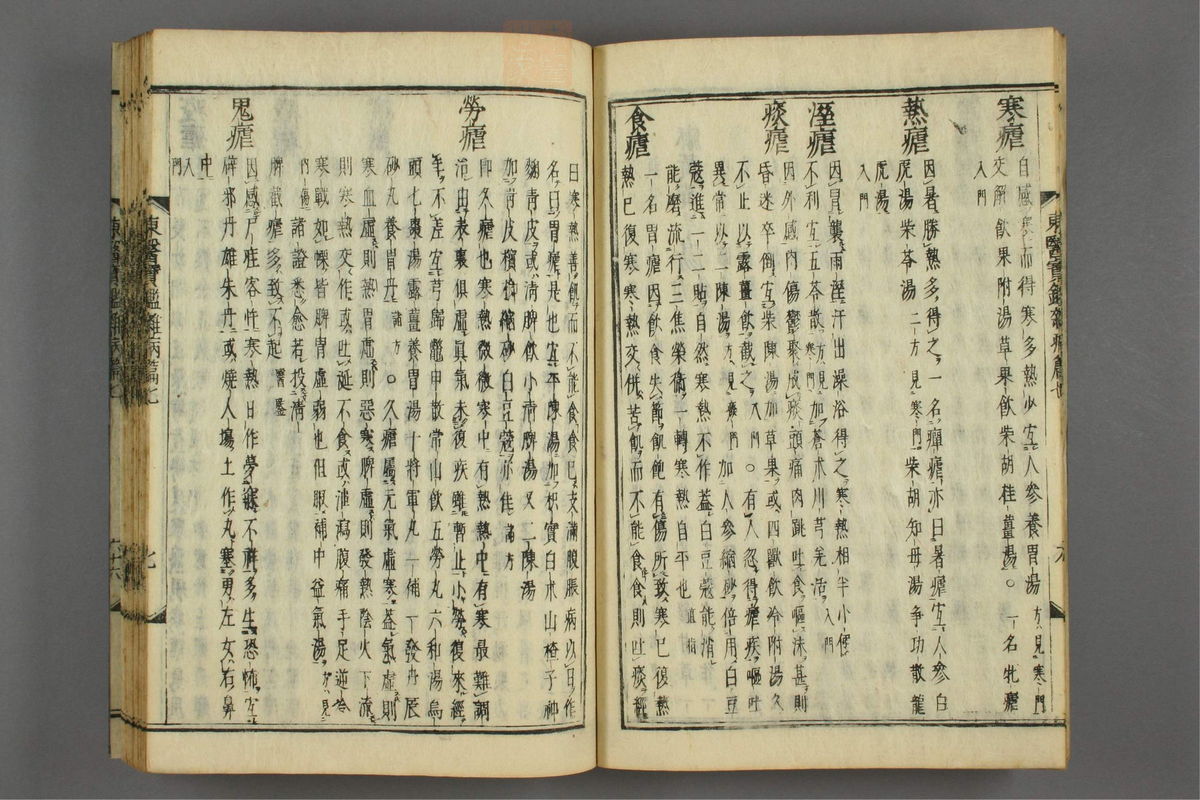 寒瘧
自感寒而得寒多熱少宜人參養胃湯方見寒門
交解飮果附湯草果飮柴胡桂薑湯○一名牝瘧
入門
熱瘧
因暑勝熱多得之一名癉瘧亦曰暑瘧宜人參白
虎湯柴苓湯二方見寒門柴胡知母湯爭功散龍
虎湯
入門
濕瘧
因冒襲雨濕汗出澡浴得之寒熱相半小便
不利宜五苓散方見寒門加蒼朮川芎羌活入門
痰瘧
因外感內傷鬱聚成痰頭痛肉跳吐食嘔沫甚則
昏迷卒倒宜柴陳湯加草果或四獸飮冷附湯久
不止以露薑飮截之入門○有人忽得瘧疾嘔吐
異常以二陳湯方見痰門加人參縮砂倍用白豆
蔻進一二貼自然寒熱不作蓋白豆蔻能消
能磨流行三焦榮衛一轉寒熱自平也直指
食瘧
一名胃瘧因飮食失節飢飽有傷所致寒已復熱
熱已復寒寒熱交併苦飢而不能食食則吐痰
曰寒熱善飢而不能食食已支滿腹脹病以日作
名曰胃瘧是也宜平陳湯加枳實白朮山楂子神
麴靑皮或淸脾飮小淸脾湯又二陳湯
加靑皮檳榔縮砂白豆蔻亦佳諸方
勞瘧
卽久瘧也寒熱微微寒中有熱熱中有寒最難調
治由表裏俱虛眞氣未復疾雖暫止小勞復來經
年不差宜芎歸鱉甲散常山飮五勞丸六和湯烏
頭七棗湯露薑養胃湯十將軍丸一補一發丹辰
砂丸養胃丹諸方○久瘧屬元氣虛寒蓋氣虛則
寒血虛則熱胃虛則惡寒脾虛則發熱陰火下流
則寒熱交作或吐涎不食或泄瀉腹痛手足逆冷
寒戰如慄皆脾胃虛弱也但服補中益氣湯方見
內傷諸證悉愈若投淸
脾截瘧多致不起醫鑑
鬼瘧
因感尸疰客忤寒熱日作夢寐不祥多生恐怖宜
辟邪丹雄朱丹或燒人場上作丸塞男左女右鼻
中入門
東醫寶鑑雜病篇七
東醫寶鑑雜病篇七